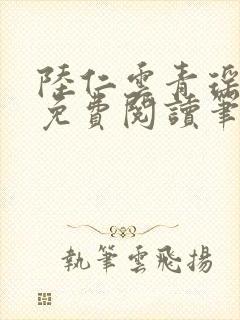 陸仁雲青瑤
免費閱讀筆
執筆雲飛揚